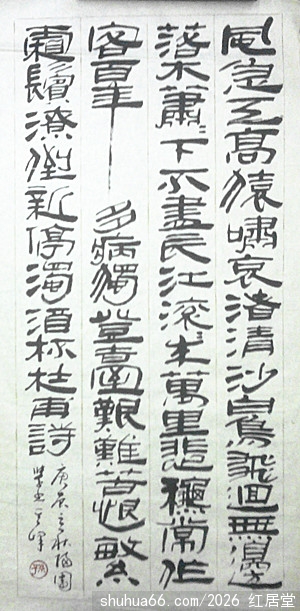 風急天高猿嘯哀渚清沙白鳥飛迴無邊
落木蕭〻下不盡長江滾〻來萬里悲穐常作
客百年多病獨登臺艱難苦恨繁
霜鬢潦倒新停濁酒杯杜甫詩
庚辰之秋
shuhua66.com/2026 红居堂